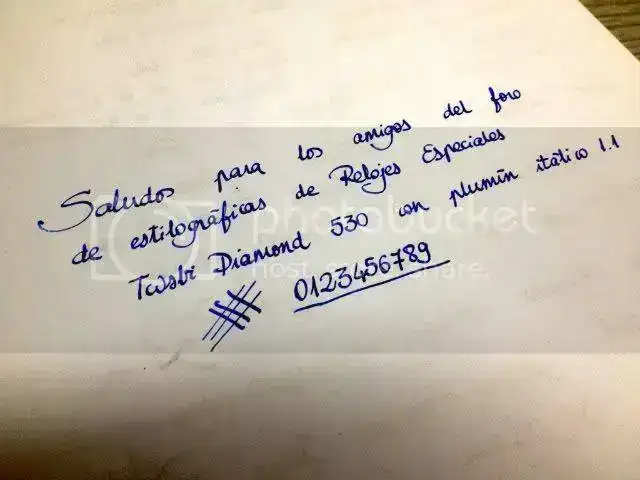 Saludos para los amigos del foro
de estilográficas de Relojes Especiales
Twsbi Diamond 530 con plumín itálico 1.1
0123456789
photobucket
host. store. share.